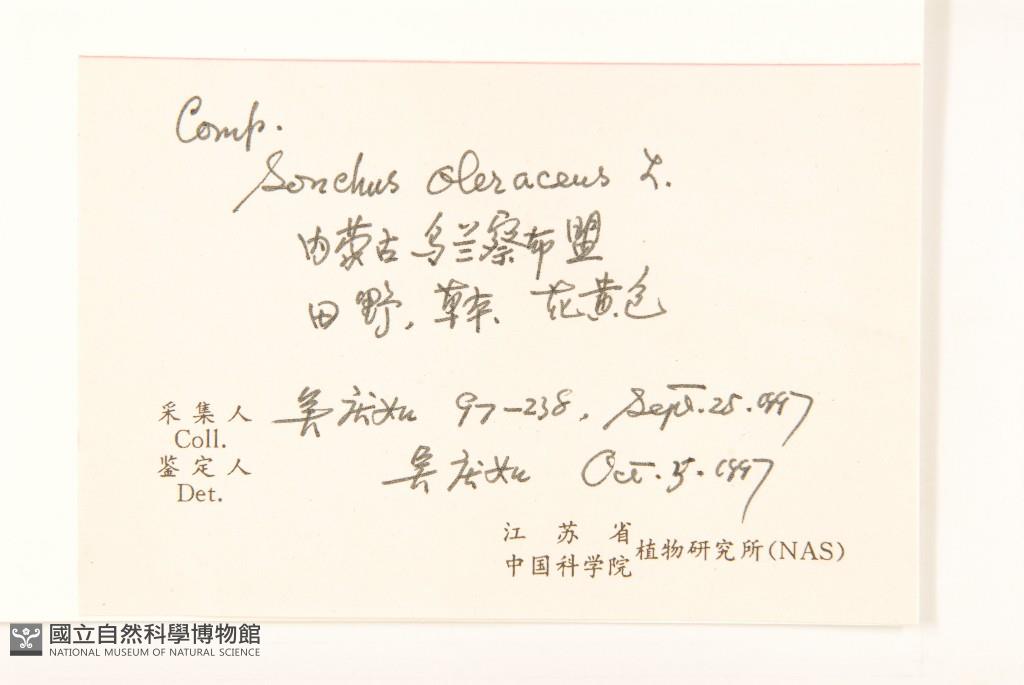 Comp.
Sonchus oleraceus L.
内蒙古乌兰察布盟
田野, 草本, 花黄色
采集人 吴庆如 97-238, Sept. 25. 1997
Coll.
鉴定人 吴庆如 Oct. 5. 1997
Det.
江苏省
中国科学院 植物研究所(NAS)
國立自然科學博物館
NATIONAL MUSEUM OF NATURAL SCIENCE